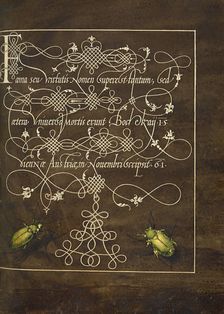 Fama seu Virtutis Nomen superest tantum, sed
cætera Universa mortis erunt, Bocskay is
Viennæ Austriæ, in Novembri scripsit. 61.